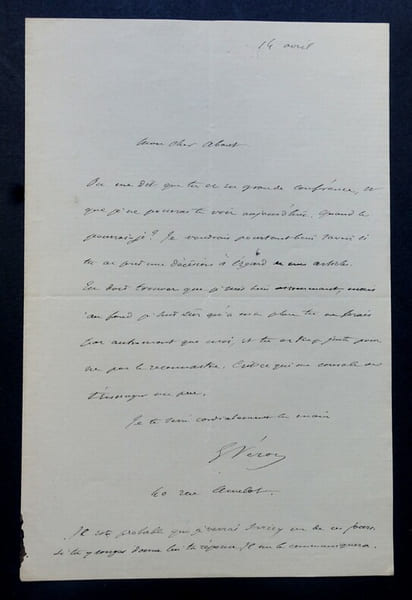 14 avril
Mon cher About
On me dit que tu es en grande conférence, et
que je ne pourrai te voir aujourd'hui. Quand le
pourrai-je? Je voudrais pourtant bien savoir si
tu as pris une décision à l'égard de mes articles.
Tu dois trouver que je suis bien mais
au fond je suis sûr qu'à ma place tu ne ferais
pas autrement que moi, et tu es trop juste pour
ne pas le reconnaître. C'est ce qui me console de
t'ennuyer un peu.
Je te serre cordialement la main
E Véron
40 rue Amelot.
Il est probable que je verrai un de ces jours.
si tu y songes donne lui ta réponse. Il me la communiquera.